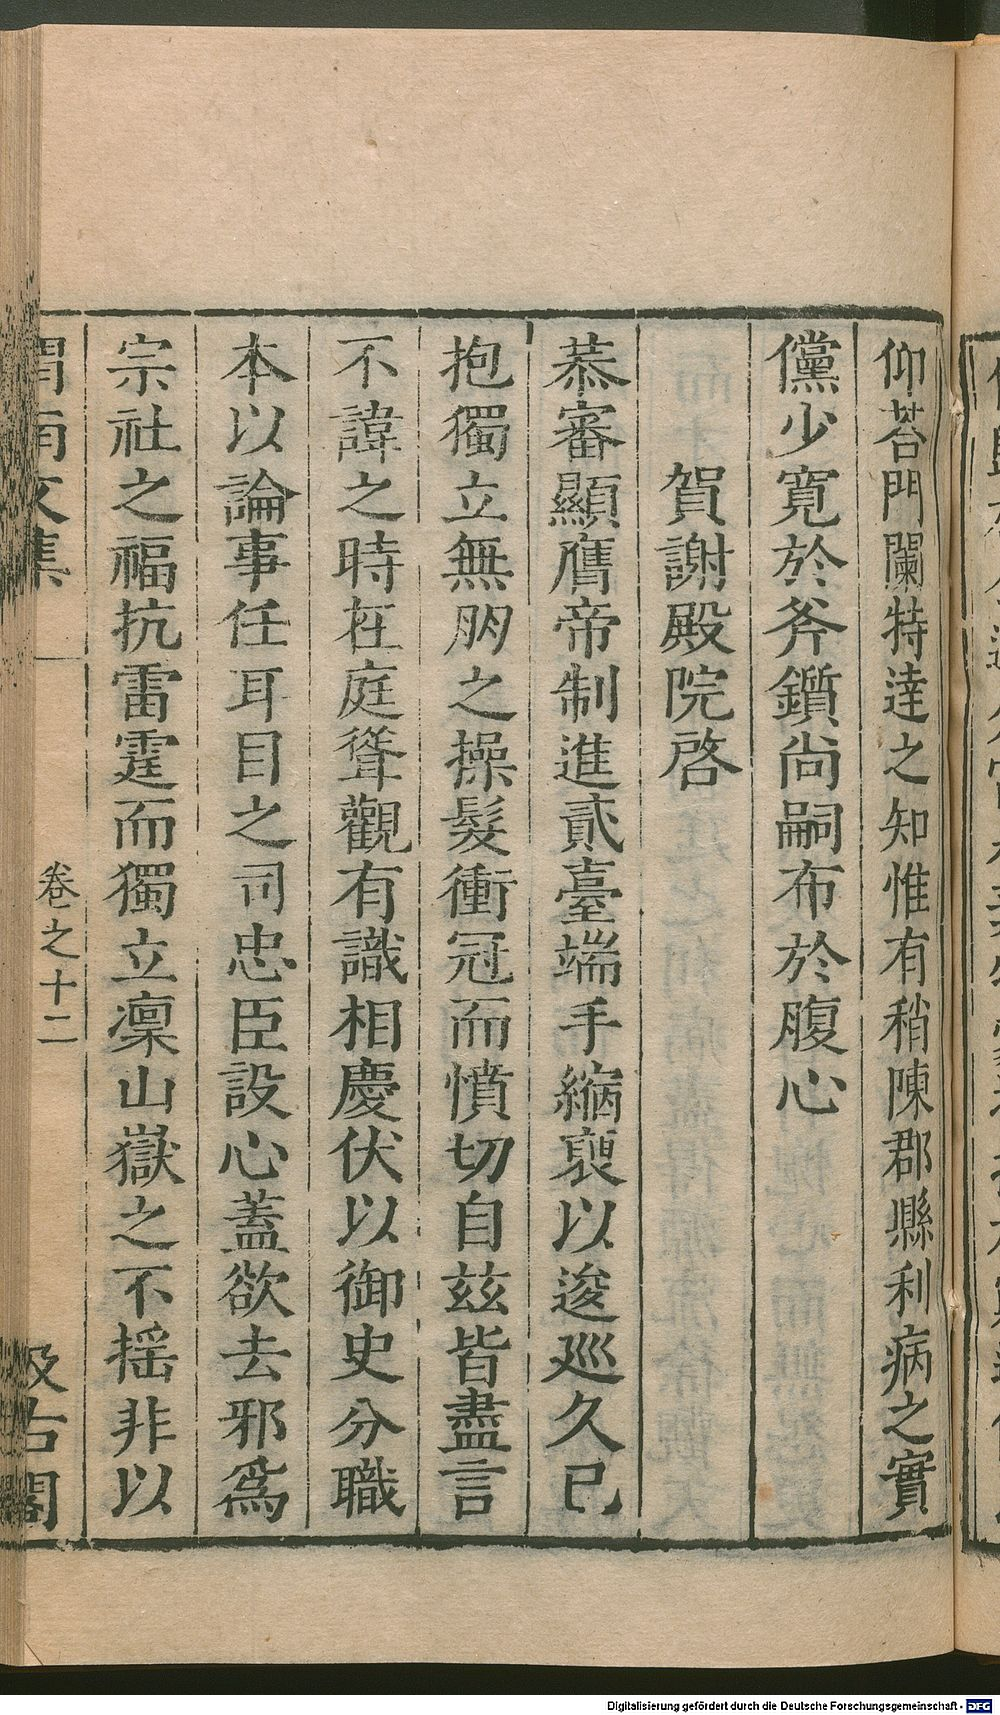 仰荅門闌特達之知惟有稍陳郡縣利病之實
儻少寬於斧鑕尚嗣布於腹心
賀謝殿院啓
恭審顯膺帝制進貳臺端手縮褏以逡巡久已
抱獨立無朋之操髮衝冠而憤切自玆皆盡言
不諱之時在庭聳觀有識相慶伏以御史分職
本以論事任耳目之司忠臣設心蓋欲去邪爲
宗社之福抗雷霆而獨立凜山嶽之不揺非以
渭南文集
卷之十二
汲古閣
Digitalisierung gefördert durch die Deutsche Forschungsgemeinschaft - DFG